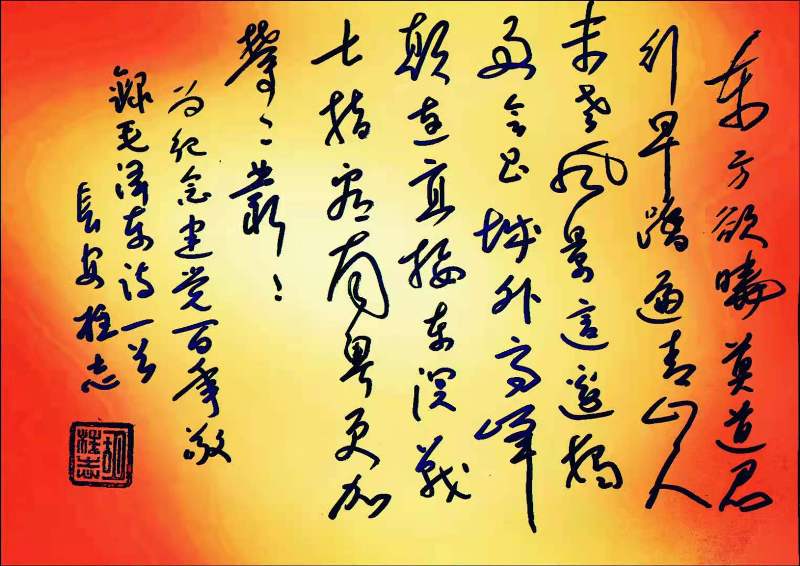 东方欲曉莫道君
行早踏遍青山人
未老风景這邊獨
好会昌城外高峰
颠连直接东溟战
士指看南粤更加
鬱〻葱〻
为纪念建党百年敬
錄毛泽东诗一首
長安桂志
胡桂志